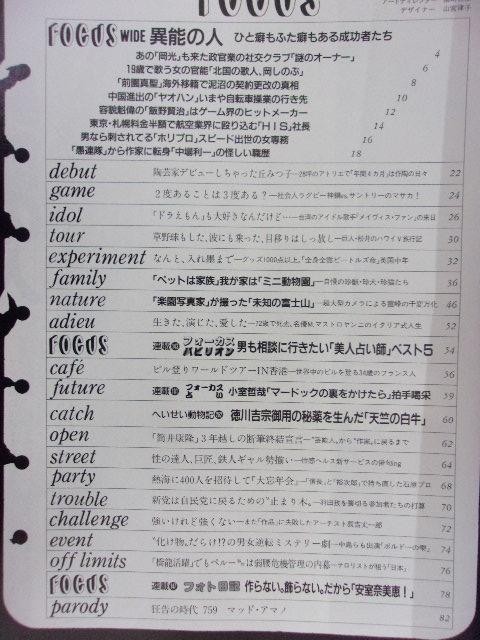 FOCUS
アートディレクター
デザイナー 山宮律子
FOCUS WIDE 異能の人 ひと癖もふた癖もある成功者たち
あの「岡光」も来た政官業の社交クラブ「謎のオーナー」 4
19歳で歌う女の官能「北国の歌人、岡しのぶ」 6
「前園真聖」海外移籍で泥沼の契約更改の真相 8
中国進出の「ヤオハン」いまや自転車操業の行き先 10
容貌魁偉の「飯野賢治」はゲーム界のヒットメーカー 12
東京・札幌料金半額で航空業界に殴り込む「HIS」社長 14
男なら刺されてる「ホリプロ」スピード出世の女専務 16
「愚連隊」から作家に転身「中場利一」の怪しい職歴 18
debut 陶芸家デビューしちゃった丘みつ子—28坪のアトリエで「年間4カ月」は作陶の日々 22
game 2度あることは3度ある?—社会人ラグビー神鋼vs.サントリーのマサカ! 24
idol 「ドラえもん」も大好きなんだけど…—台湾のアイドル歌手「メイヴィス・ファン」の来日 26
tour 草野球もした、波にも乗った、目移りはしっ放し—巨人・松井のハワイV旅行記 30
experiment なんと、入れ墨まで—グッズ1000点以上、「全身全霊ビートルズ命」英国中年 32
family 「ペットは家族」我が家は「ミニ動物園」—自慢の珍獣・珍犬・珍猫たち 36
nature 「楽園写真家」が撮った「未知の富士山」—超大型カメラによる霊峰の千変万化 46
adieu 生きた、演じた、愛した—72歳で死去、名優M.マストロヤンニのイタリア式人生 52
FOCUS 連載 フォーカスパビリオン 男も相談に行きたい「美人占い師」ベスト5 54
café ビル登りワールドツアーIN香港—世界中のビルを登る34歳のフランス人 56
future 連載 フォーカス占い 小室哲哉「マードックの裏をかけたら」拍手喝采 59
catch へいせい動物記 徳川吉宗御用の秘薬を生んだ「天竺の白牛」 60
open 「筒井康隆」3年越しの断筆終結宣言—"芸歴人"から"作家"に戻るまで 62
street 性の達人、巨匠、鉄人ギャル勢揃い—性感ヘルス新サービスの俳句ing 64
party 熱海に400人を招待して「大忘年会」—「信長」と「裕次郎」で持ち直した石原プロ 68
trouble 新党は自民党に戻るための"止まり木"—羽田孜を裏切る参加者たちの打算 70
challenge 強いけれど強くない—また「作品」に失敗したアーチスト長吉丈一郎 72
event "化け物"だらけ!?の男女逆転ミステリー劇—中島らも出演「ボルドーの雫」 74
off limits 「橋龍活躍」でもペルーも弱腰危機管理の内幕—テロリストが狙う「日本」 76
FOCUS 連載 フォト日記 作らない。飾らない。だから「安室奈美恵」! 78
parody 狂告の時代 759 マッド・アマノ 82